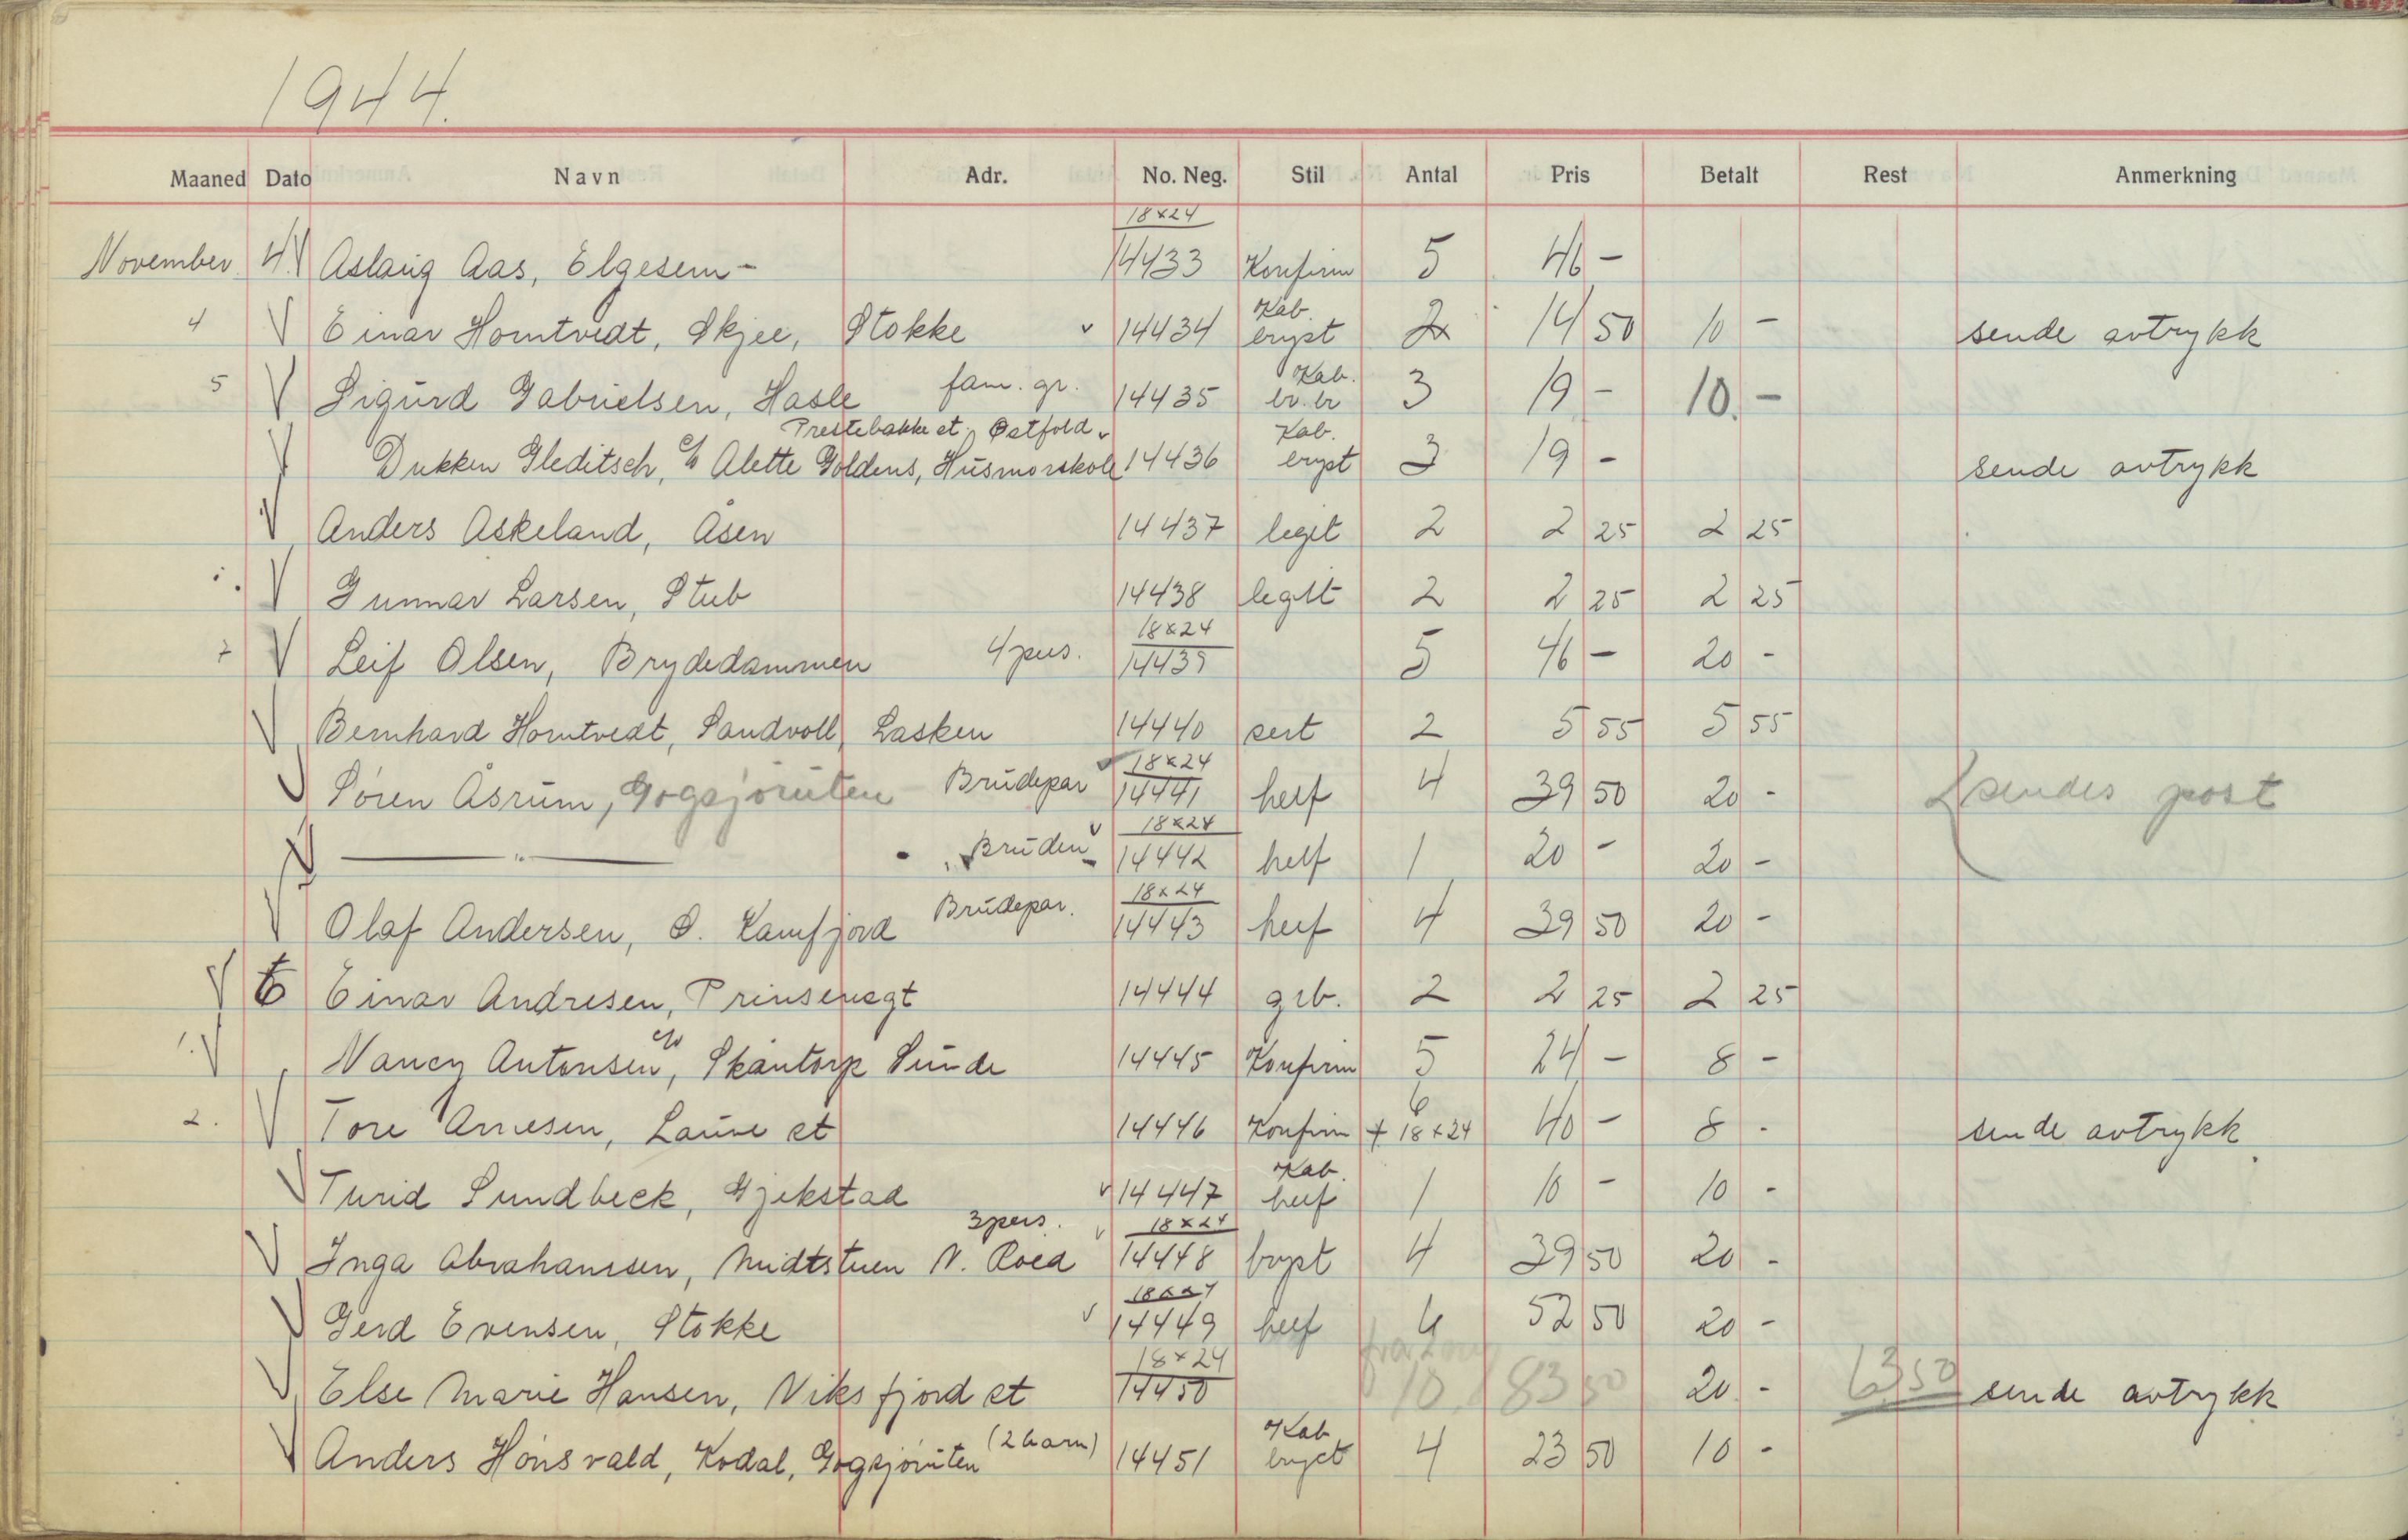 1944.
Maaned Dato Navn Adr. No. Neg. Stil Antal Pris Betalt Rest Anmerkning
18x24
November 4. Aslaug Aas, Elgesem - 14433 Konfirm 5 46 -
Kab.
4 Einar Homtvedt, Skjee, Stokke 14434 bryst 2x 14 50 10 - sende avtrykk
Kab.
5 Sigurd Gabrielsen, Hasle fam. gr. 14435 br. br 3 19 - 10. -
Prestebakke st. Østfold Kab.
Dukken Gleditsch, c/o Alette Goldens, Husmorskole 14436 bryst 3 19 - sende avtrykk
Anders Askeland, Åsen 14437 legit 2 2 25 2 25
Gunnar Larsen, Stub 14438 legit 2 2 25 2 25
18x24
7 Leif Olsen, Brydedammen 4 pers. 14439 5 46 - 20 -
Bernhard Homtvedt, Sandvoll, Lasken 14440 sert 2 5 55 5 55
18x24
Søren Åsrum, Gogsjøruten Brudepar 14441 helf 4 39 50 20 - sendes post
18x24
— " — Bruden 14442 helf 1 20 - 20 -
18x24
Olaf Andersen, Ø. Kamfjord Brudepar. 14443 helf 4 39 50 20 -
6 Einar Andresen, Prinsensgt 14444 grb. 2 2 25 2 25
1. Nancy Antonsen, c/o Skantorp Sunde 14445 Konfirm 5 24 - 8 -
6
2. Tore Arnesen, Lauve st 14446 Konfirm + 18x24 40 - 8 - sende avtrykk
Kab.
Turid Sundbeck, Gjekstad 14447 helf 1 10 - 10 -
3 pers. 18x24
Inga Abrahamsen, Midtstuen N. Roed 14448 bryst 4 39 50 20 -
18x24
Gerd Evensen, Stokke 14449 helf 6 52 50 20 -
18x24
Else Marie Hansen, Viksfjord st 14450 10 83 50 20. - 63 50 sende avtrykk
Kab
Anders Hønsvald, Kodal, Gogsjøruten (2 barn) 14451 bryst 4 23 50 10 -